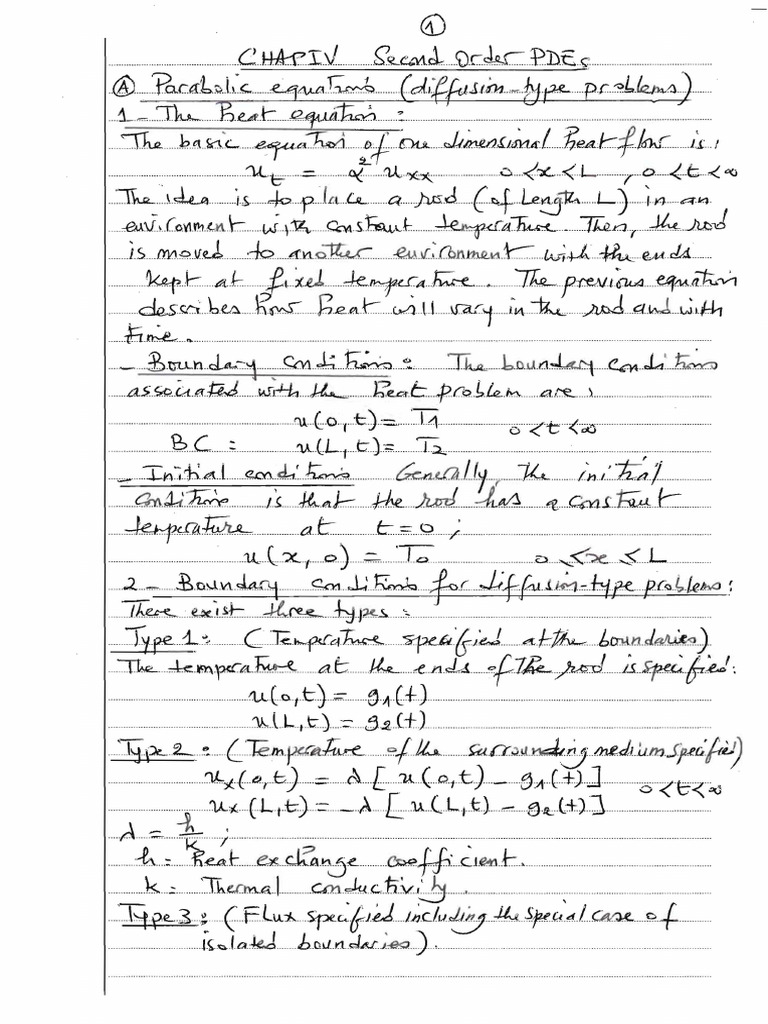 1
CHAPIV Second Order PDEs
A Parabolic equations (diffusion-type problems)
1 - The heat equation :
The basic equation of one dimensional heat flow is:
u_t = α² u_xx 0<x<L , 0<t<∞
The idea is to place a rod (of Length L) in an
environment with constant temperature. Then, the rod
is moved to another environment with the ends
kept at fixed temperature. The previous equation
describes how heat will vary in the rod and with
time.
- Boundary conditions : The boundary conditions
associated with the heat problem are:
u(0,t) = T1
BC : u(L,t) = T2 0<t<∞
- Initial conditions Generally, the initial
conditions is that the rod has a constant
temperature at t=0 ;
u(x,0) = T0 0≤x≤L
2 - Boundary conditions for diffusion-type problems:
There exist three types :
Type 1 : (Temperature specified at the boundaries)
The temperature at the ends of the rod is specified:
u(0,t) = g1(t)
u(L,t) = g2(t)
Type 2 : (Temperature of the surrounding medium specified)
u_x(0,t) = λ [ u(0,t) - g1(t) ]
u_x(L,t) = -λ [ u(L,t) - g2(t) ] 0<t<∞
λ = h/k ;
h = heat exchange coefficient.
k = Thermal conductivity.
Type 3 : (Flux specified including the special case of
isolated boundaries).